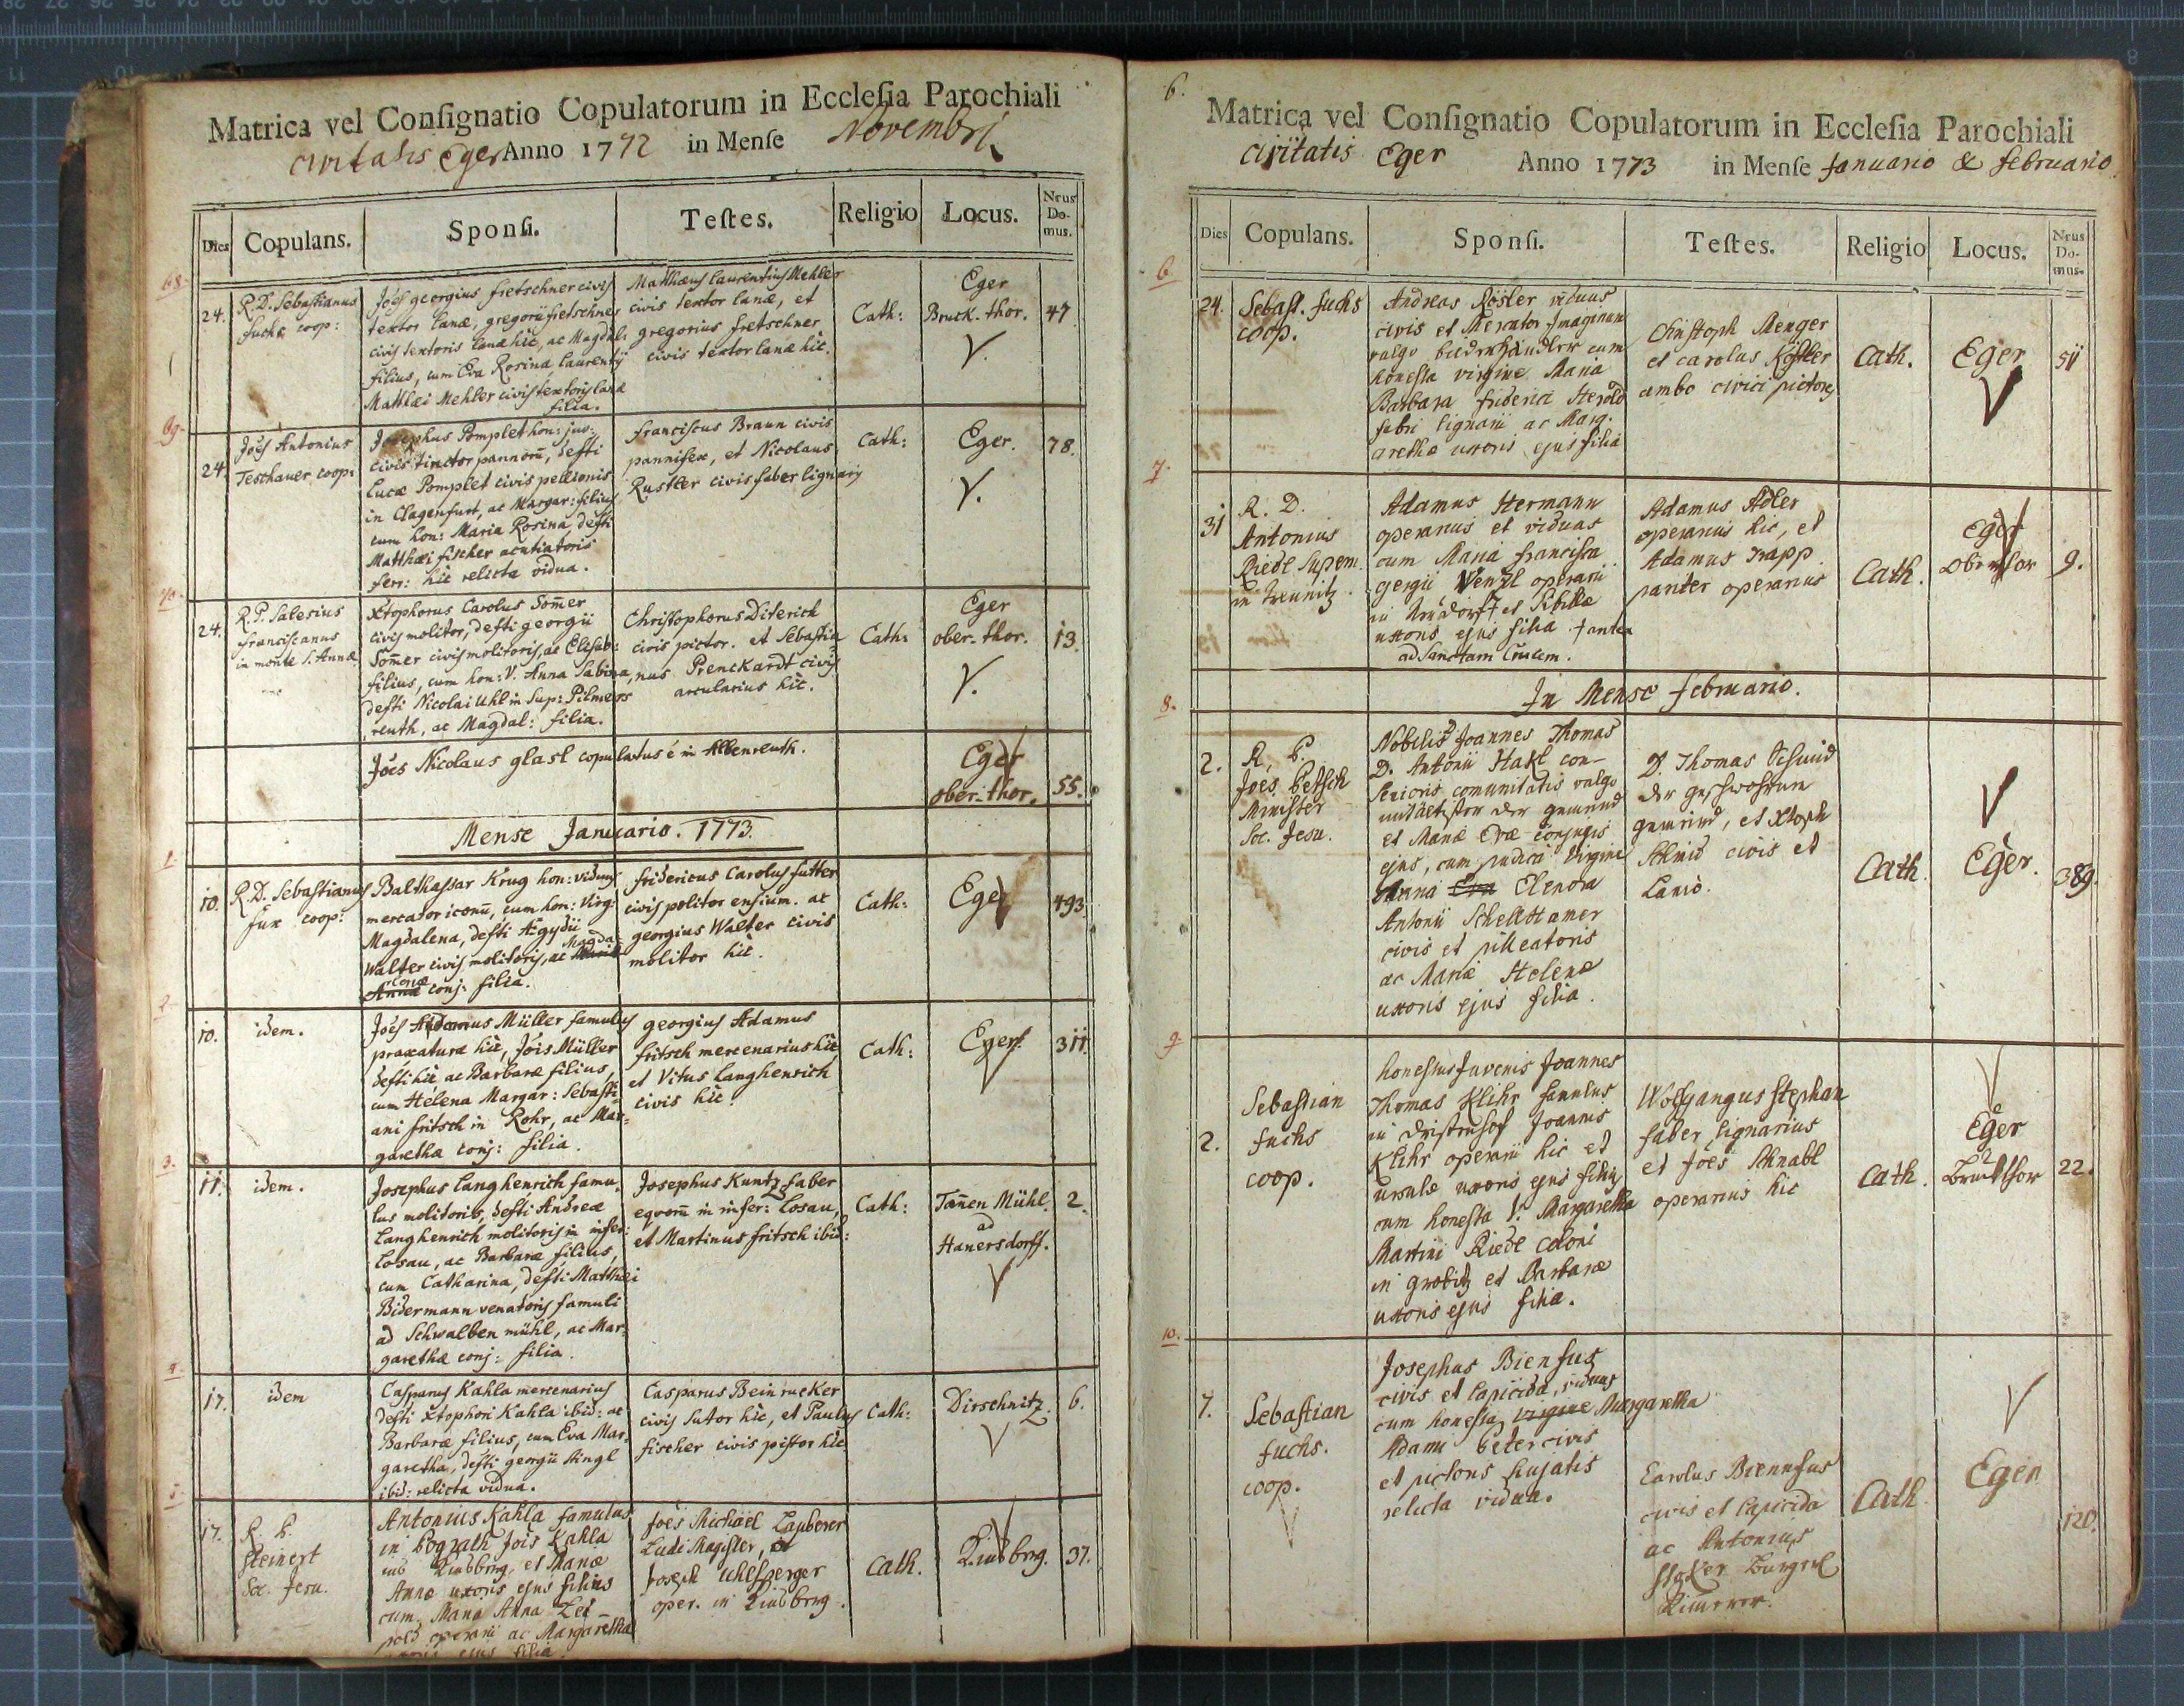 Matrica vel Conſignatio Copulatorum in Eccleſia Parochiali
civitatis Eger Anno 1772 in Menſe Novembri
Dies Copulans. Sponſi. Teſtes. Religio Locus. Nrus Domus.
68.
24. R.D. Sebastianus fuchs coop:
Joes georgius fretschner civis
textor lanæ, gregorii fretschner
civis textoris lanæ hic, ac Magdal:
filius, cum Eva Rosina, Laurentij
Matthæi Mehler civis textoris lanæ
filia.
Matthæus Laurentius Mehler
civis textor lanæ, et
gregorius fretschner
civis textor lanæ hic.
Cath:
Eger
Bruck-thor.
47
69.
24.
Joes Antonius
Teschauer coop:
Josephus Pomplet hon: juv:
civis tinctor pannorum, defti
Lucæ Pomplet civis pellionis
in Clagenfurt, ac Margar: filius
cum hon: Maria Rosina defti
Matthæi fischer
ferr: hic relicta vidua.
franciscus Braun civis
pannifex, et Nicolaus
Rustler civis faber lignarij
Cath:
Eger.
78.
70.
24.
R.P. Salesius
franciscanus
in monte S. Annæ
Xtophorus Carolus Som̄er
civis molitor, defti georgii
Som̄er civis molitoris, ac Elisab:
filius, cum hon: V. Anna Sabina,
defti Nicolai Uhl in Sup: Pilmers
reuth, ac Magdal: filia.
Christophorus Diterich
civis pictor. et Sebastia
nus Prenckardt civis
arcularius hic.
Cath:
Eger
ober-thor.
13.
Joes Nicolaus glasl copulatus é in Albenreuth.
Eger
ober-thor.
55.
Mense Januario. 1773.
1.
10.
R.D. Sebastianus
fux coop:
Balthassar Krug hon: viduus
mercator iconū, cum hon: Virg:
Magdalena, defti Ægydii
Walter civis molitoris, ac Magda
lenæ conj: filia.
fridericus Carolus futter
civis politor ensium. ac
georgius Walter civis
molitor hic.
Cath:
Eger
493
2.
10.
idem.
Joes Adamus Müller famulus
praxaturæ hic, Jois Müller
defti hic ac Barbaræ filius,
cum Helena Margar: Sebasti
ani fritsch in Rohr, ac Mar-
garethæ conj: filia.
georgius Adamus
fritsch mercenarius hic
et Vitus Langhenrich
civis hic.
Cath:
Eger
311.
3.
11.
idem.
Josephus Langhenrich famu-
lus molitoris, defti Andreæ
Langhenrich molitoris in infer:
Losau, ac Barbaræ filius,
cum Catharina, defti Matthæi
Bidermann venatoris famuli
ad Schwalben mühl, ac Mar-
garethæ conj: filia.
Josephus Kuntz faber
equorū in infer: Losau,
et Martinus fritsch ibid:
Cath:
Tan̄en Mühl.
ad
Hanersdorff.
2.
4.
17.
idem
Casparus Kahla mercenarius
defti Xtophori Kahla ibid: ac
Barbaræ filius, cum Eva Mar-
garetha, defti georgii Stingl
ibid: relicta vidua.
Casparus Beinrucker
civis sutor hic, et Paulus
fischer civis pistor hic
Cath:
Dirschnitz.
6.
5.
17.
Steinert
Soc. Jesu.
Antonius Kahla famulus
in Pograth Jois Kahla
Annæ uxoris ejus filius
cum Maria Anna
operarii ac Margaretha
ejus filia
Joes Michael
Ludi Magister, et
Joseph Uhlsperger
oper. in
Cath.
37.
6.
Matrica vel Conſignatio Copulatorum in Eccleſia Parochiali
civitatis Eger Anno 1773 in Menſe Januario & februario.
Dies Copulans. Sponſi. Teſtes. Religio Locus. Nrus Domus.
6.
24.
Sebast. fuchs
coop.
Andreas Rösler viduus
civis et Mercator Imaginum
vulgo bilderhändler cum
honesta virgine Maria
Barbara friderici Herold
fabri lignarii ac Marg-
arethæ uxoris ejus filia
Christoph Menger
et carolus Rößler
ambo civici pictores
Cath.
Eger
511
7.
31
R. D.
Antonius
Riedl Supem.
in Treunitz.
Adamus Hermann
operarius et viduus
cum Maria francisca
georgii Wenzl operarii
et Sibillæ
uxoris ejus filia
ad Sanctam Crucem.
Adamus Adler
operarius hic, et
Adamus Trapp
pariter operarius
Cath.
Eger
oberthor
9.
In Mense februario.
8.
2.
R. P.
Joes Petsch
Minister
Soc. Jesu.
Nobilis Joannes Thomas
D. Antonii Hakl con-
comunitatis vulgo
der gemeind
et Mariæ Evæ conjugis
ejus, cum pudica Virgine
Anna Elenora
Antonii Schellhamer
civis et pilleatoris
ac Mariæ Helenæ
uxoris ejus filia.
D. Thomas Schmid
der geschwohrnen
gemeind, et Xtoph
Schmid civis et
Lanio.
Cath.
Eger.
389.
9.
2.
Sebastian
fuchs
coop.
honestus Juvenis Joannes
Thomas Klihr famulus
in Joannis
Klihr operarii hic et
Ursulæ uxoris ejus filius
cum honesta V. Margaretha
Martini Riedl coloni
in grobitz et Barbaræ
uxoris ejus filia.
Wolfgangus Stephan
faber lignarius
et Joes Schnabl
operarius hic
Cath.
Eger
Bruckthor
22.
10.
7.
Sebastian
fuchs.
coop.
Josephus Biensus
civis et lapicida, viduus
cum honesta virgine Margaretha
Adami Peter civis
et pictoris hujatis
relicta vidua.
Carolus
civis et lapicida
ac Antonius
Cath.
Eger
120.